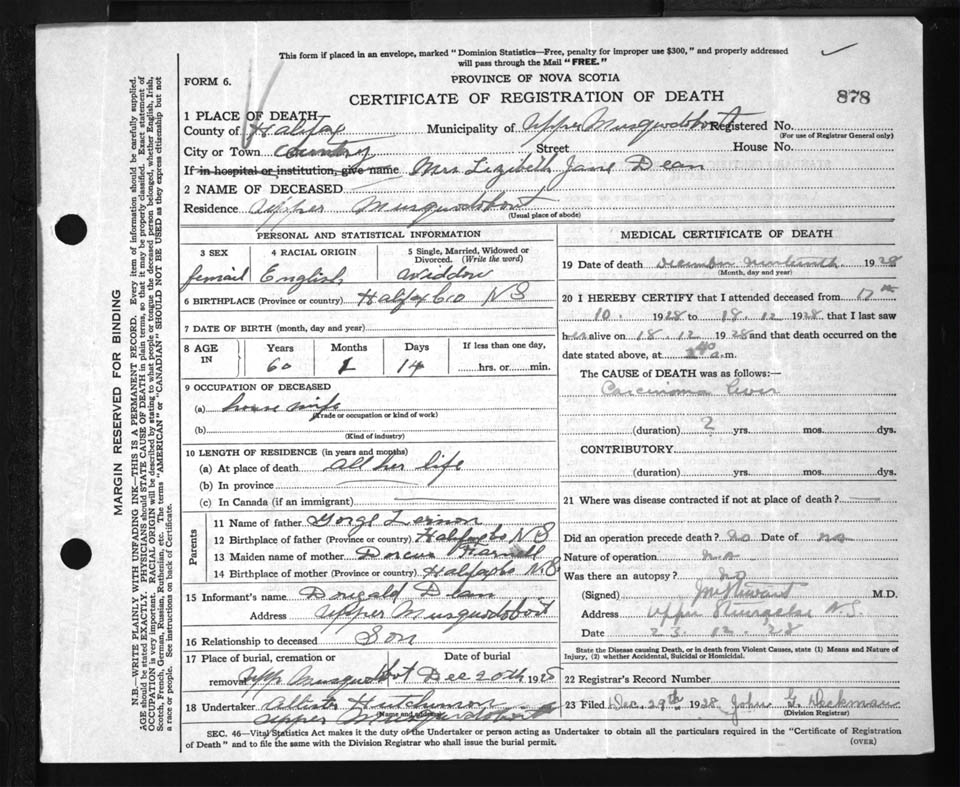 This form if placed in an envelope, marked "Dominion Statistics—Free, penalty for improper use $300," and properly addressed
will pass through the Mail "FREE."
FORM 6.
PROVINCE OF NOVA SCOTIA
CERTIFICATE OF REGISTRATION OF DEATH
878
1 PLACE OF DEATH
County of Halifax Municipality of Upper Musquodoboit Registered No.
(For use of Registrar General only)
City or Town Country Street House No.
If in hospital or institution, give name Mrs Lizibeth Jane Dean
2 NAME OF DECEASED
Residence Upper Musquodoboit
(Usual place of abode)
PERSONAL AND STATISTICAL INFORMATION
3 SEX
4 RACIAL ORIGIN
5 Single, Married, Widowed or
Divorced. (Write the word)
femail English widdow
6 BIRTHPLACE (Province or country) Halifax Co N S
7 DATE OF BIRTH (month, day and year)
8 AGE
IN
Years
Months
Days
If less than one day,
60 1 14 hrs. or min.
9 OCCUPATION OF DECEASED
(a) house wife
(Trade or occupation or kind of work)
(b)
(Kind of industry)
10 LENGTH OF RESIDENCE (in years and months)
(a) At place of death all her life
(b) In province
(c) In Canada (if an immigrant)
Parents
11 Name of father Gorge
12 Birthplace of father (Province or country) Halifax N S
13 Maiden name of mother Dorcus
14 Birthplace of mother (Province or country) Halifax N S
15 Informant's name Dougald Dean
Address Upper Musquodoboit
16 Relationship to deceased Son
17 Place of burial, cremation or
removal Upp Musquodobot
Date of burial
Dec 20th 1928
18 Undertaker
Upper Musquodoboit
MEDICAL CERTIFICATE OF DEATH
19 Date of death December 1928
(Month, day and year)
20 I HEREBY CERTIFY that I attended deceased from 17th
10. 1928 to 18.12 1928 that I last saw
her alive on 18.12 1928 and that death occurred on the
date stated above, at a.m.
The CAUSE of DEATH was as follows:—
Carcinoma liver
(duration) 2 yrs. mos. dys.
CONTRIBUTORY.
(duration) yrs. mos. dys.
21 Where was disease contracted if not at place of death?
Did an operation precede death? no Date of no
Nature of operation no
Was there an autopsy? no
(Signed) Stewart M.D.
Address Upper N.S.
Date 23.12.28
State the Disease causing Death, or in death from Violent Causes, state (1) Means and Nature of
Injury, (2) whether Accidental, Suicidal or Homicidal.
22 Registrar's Record Number
23 Filed Dec. 29th 1928 John G.
(Division Registrar)
SEC. 46—Vital Statistics Act makes it the duty of the Undertaker or person acting as Undertaker to obtain all the particulars required in the "Certificate of Registration
of Death" and to file the same with the Division Registrar who shall issue the burial permit.
(OVER)
MARGIN RESERVED FOR BINDING
N.B.—WRITE PLAINLY WITH UNFADING INK—THIS IS A PERMANENT RECORD. Every item of information should be carefully supplied.
AGE should be stated EXACTLY. PHYSICIANS should STATE CAUSE OF DEATH in plain terms, so that it may be properly classified. Exact statement of
OCCUPATION is very important. RACIAL ORIGIN will be described by stating to what people or tongue the deceased person belonged, whether English, Irish,
Scotch, French, German, Russian, Ruthenian, etc. The terms "AMERICAN" or "CANADIAN" SHOULD NOT BE USED as they express citizenship but not
a race or people. See instructions on back of Certificate.